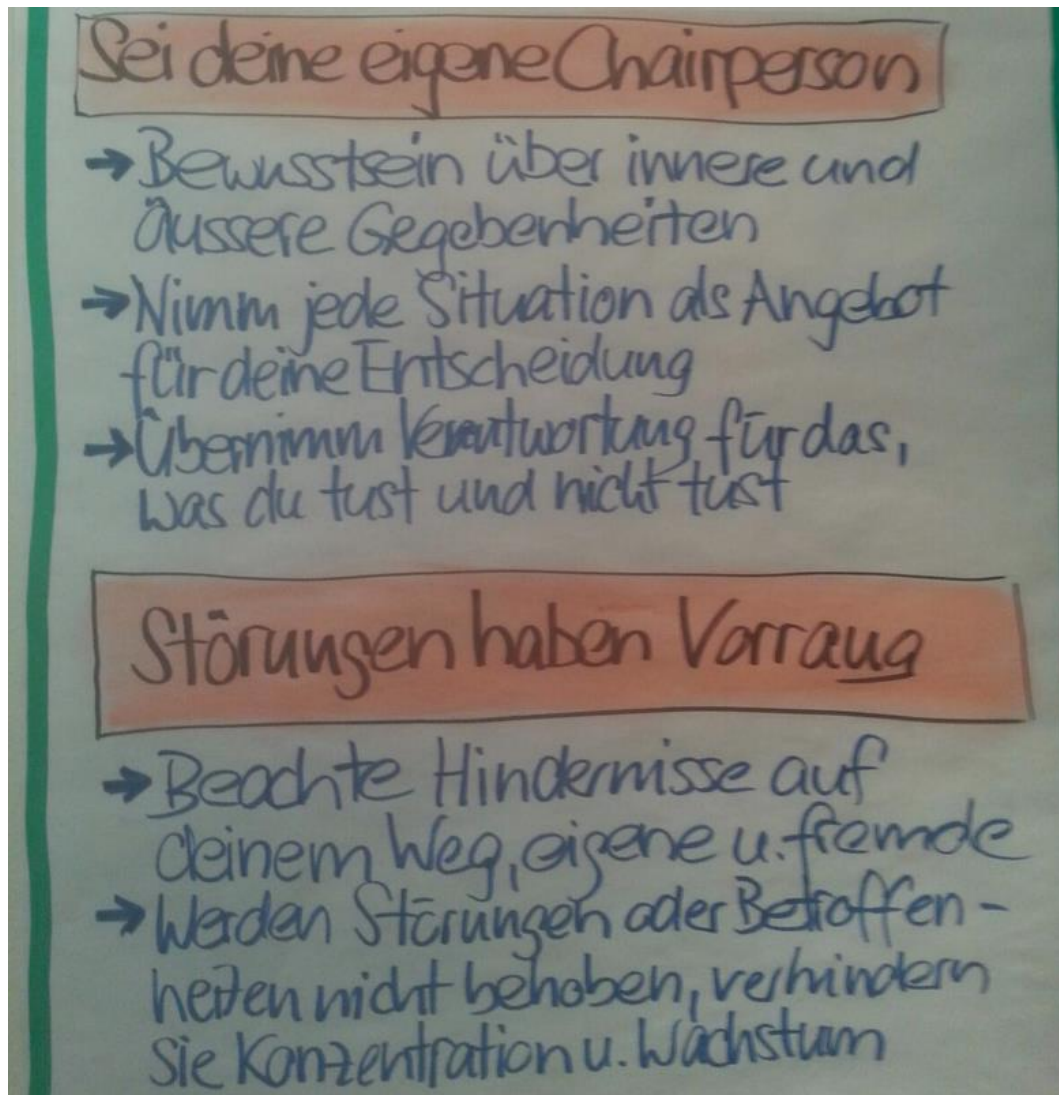 Sei deine eigene Chairperson
→ Bewusstsein über innere und
äussere Gegebenheiten
→ Nimm jede Situation als Angebot
für deine Entscheidung
→ Übernimm Verantwortung für das,
was du tust und nicht tust
Störungen haben Vorrang
→ Beachte Hindernisse auf
deinem Weg, eigene u. fremde
→ Werden Störungen oder Betroffen-
heiten nicht behoben, verhindern
sie Konzentration u. Wachstum